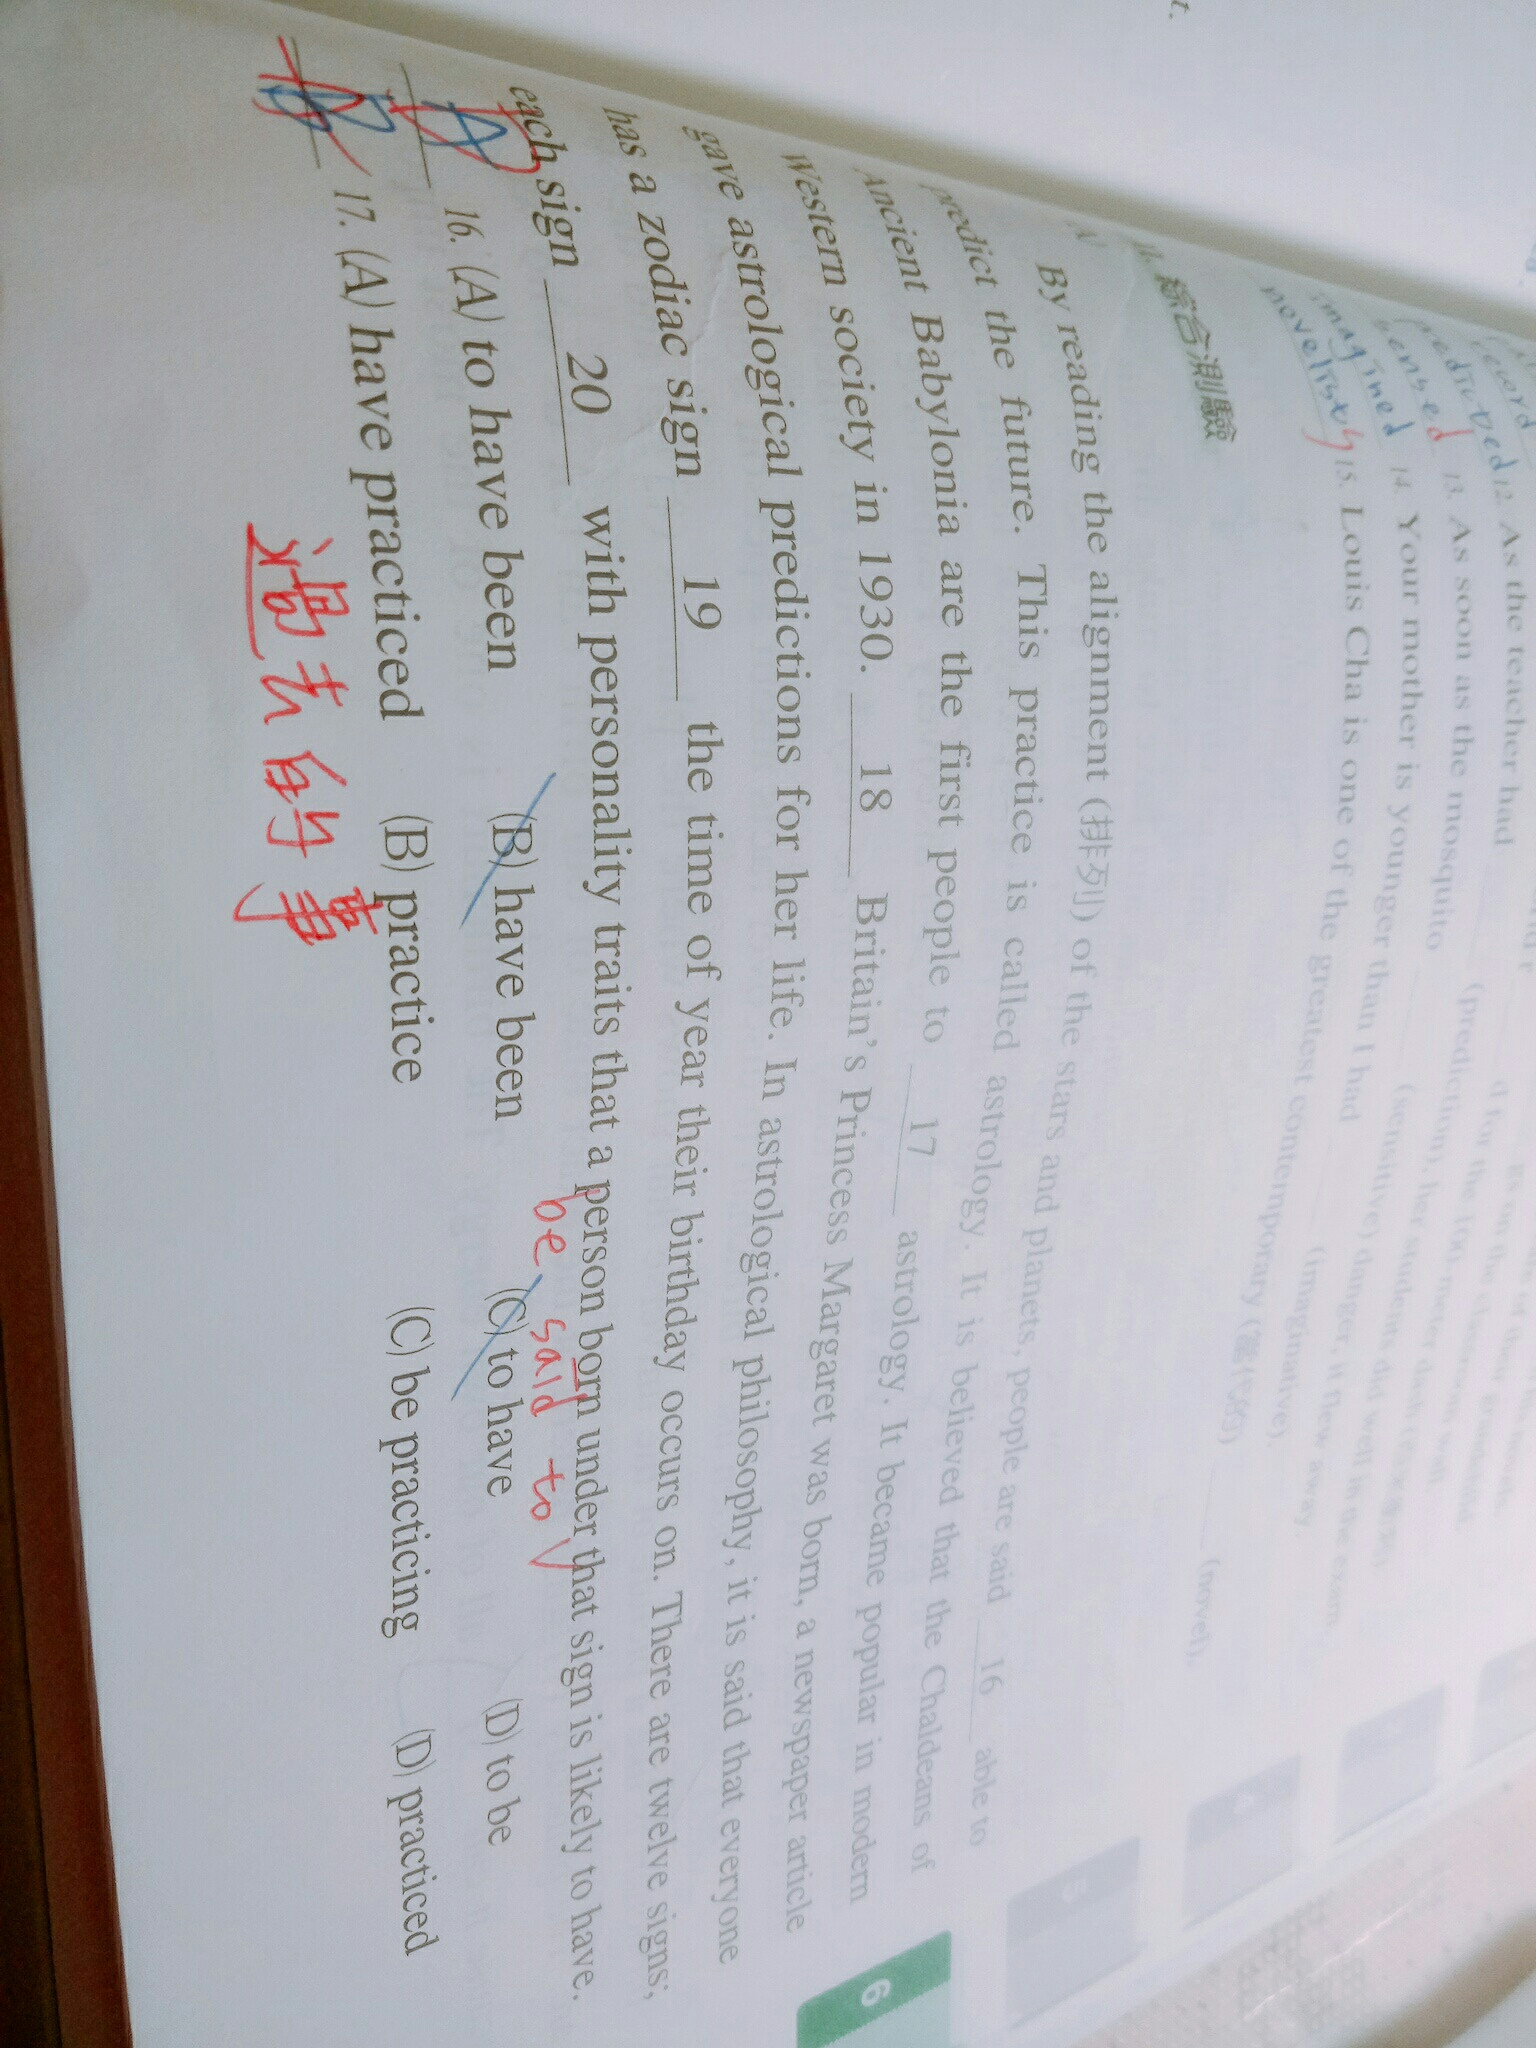 t.
record
predicted 12. As the teacher had
sensed 13. As soon as the mosquito (prediction), her students did well in the exam.
imagined 14. Your mother is younger than I had (sensitive) danger, it flew away.
novelists 15. Louis Cha is one of the greatest contemporary (當代的) (novel).
(imaginative).
綜合測驗
By reading the alignment (排列) of the stars and planets, people are said 16 able to
predict the future. This practice is called astrology. It is believed that the Chaldeans of
Ancient Babylonia are the first people to 17 astrology. It became popular in modern
Western society in 1930. 18 Britain's Princess Margaret was born, a newspaper article
gave astrological predictions for her life. In astrological philosophy, it is said that everyone
has a zodiac sign 19 the time of year their birthday occurs on. There are twelve signs;
each sign 20 with personality traits that a person born under that sign is likely to have.
be said to V
A 16. (A) to have been (B) have been (C) to have (D) to be
17. (A) have practiced (B) practice (C) be practicing (D) practiced
過去的事
6